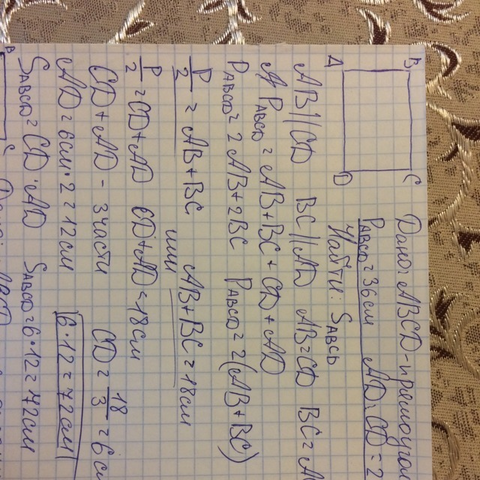 B C
A D
Дано: ABCD - прямоугол
PABCD = 36 см AD:CD = 2
Найти: SABCD
AB || CD BC || AD AB = CD BC = A
PABCD = AB + BC + CD + AD
PABCD = 2AB + 2BC PABCD = 2(AB + BC)
P/2 = AB + BC или AB + BC = 18 см
P/2 = CD + AD CD + AD = 18 см
CD + AD - 3 части CD = 18/3 = 6 см
AD = 6 см · 2 = 12 см 6 · 12 = 72 см
SABCD = CD · AD SABCD = 6 · 12 = 72 см
B C